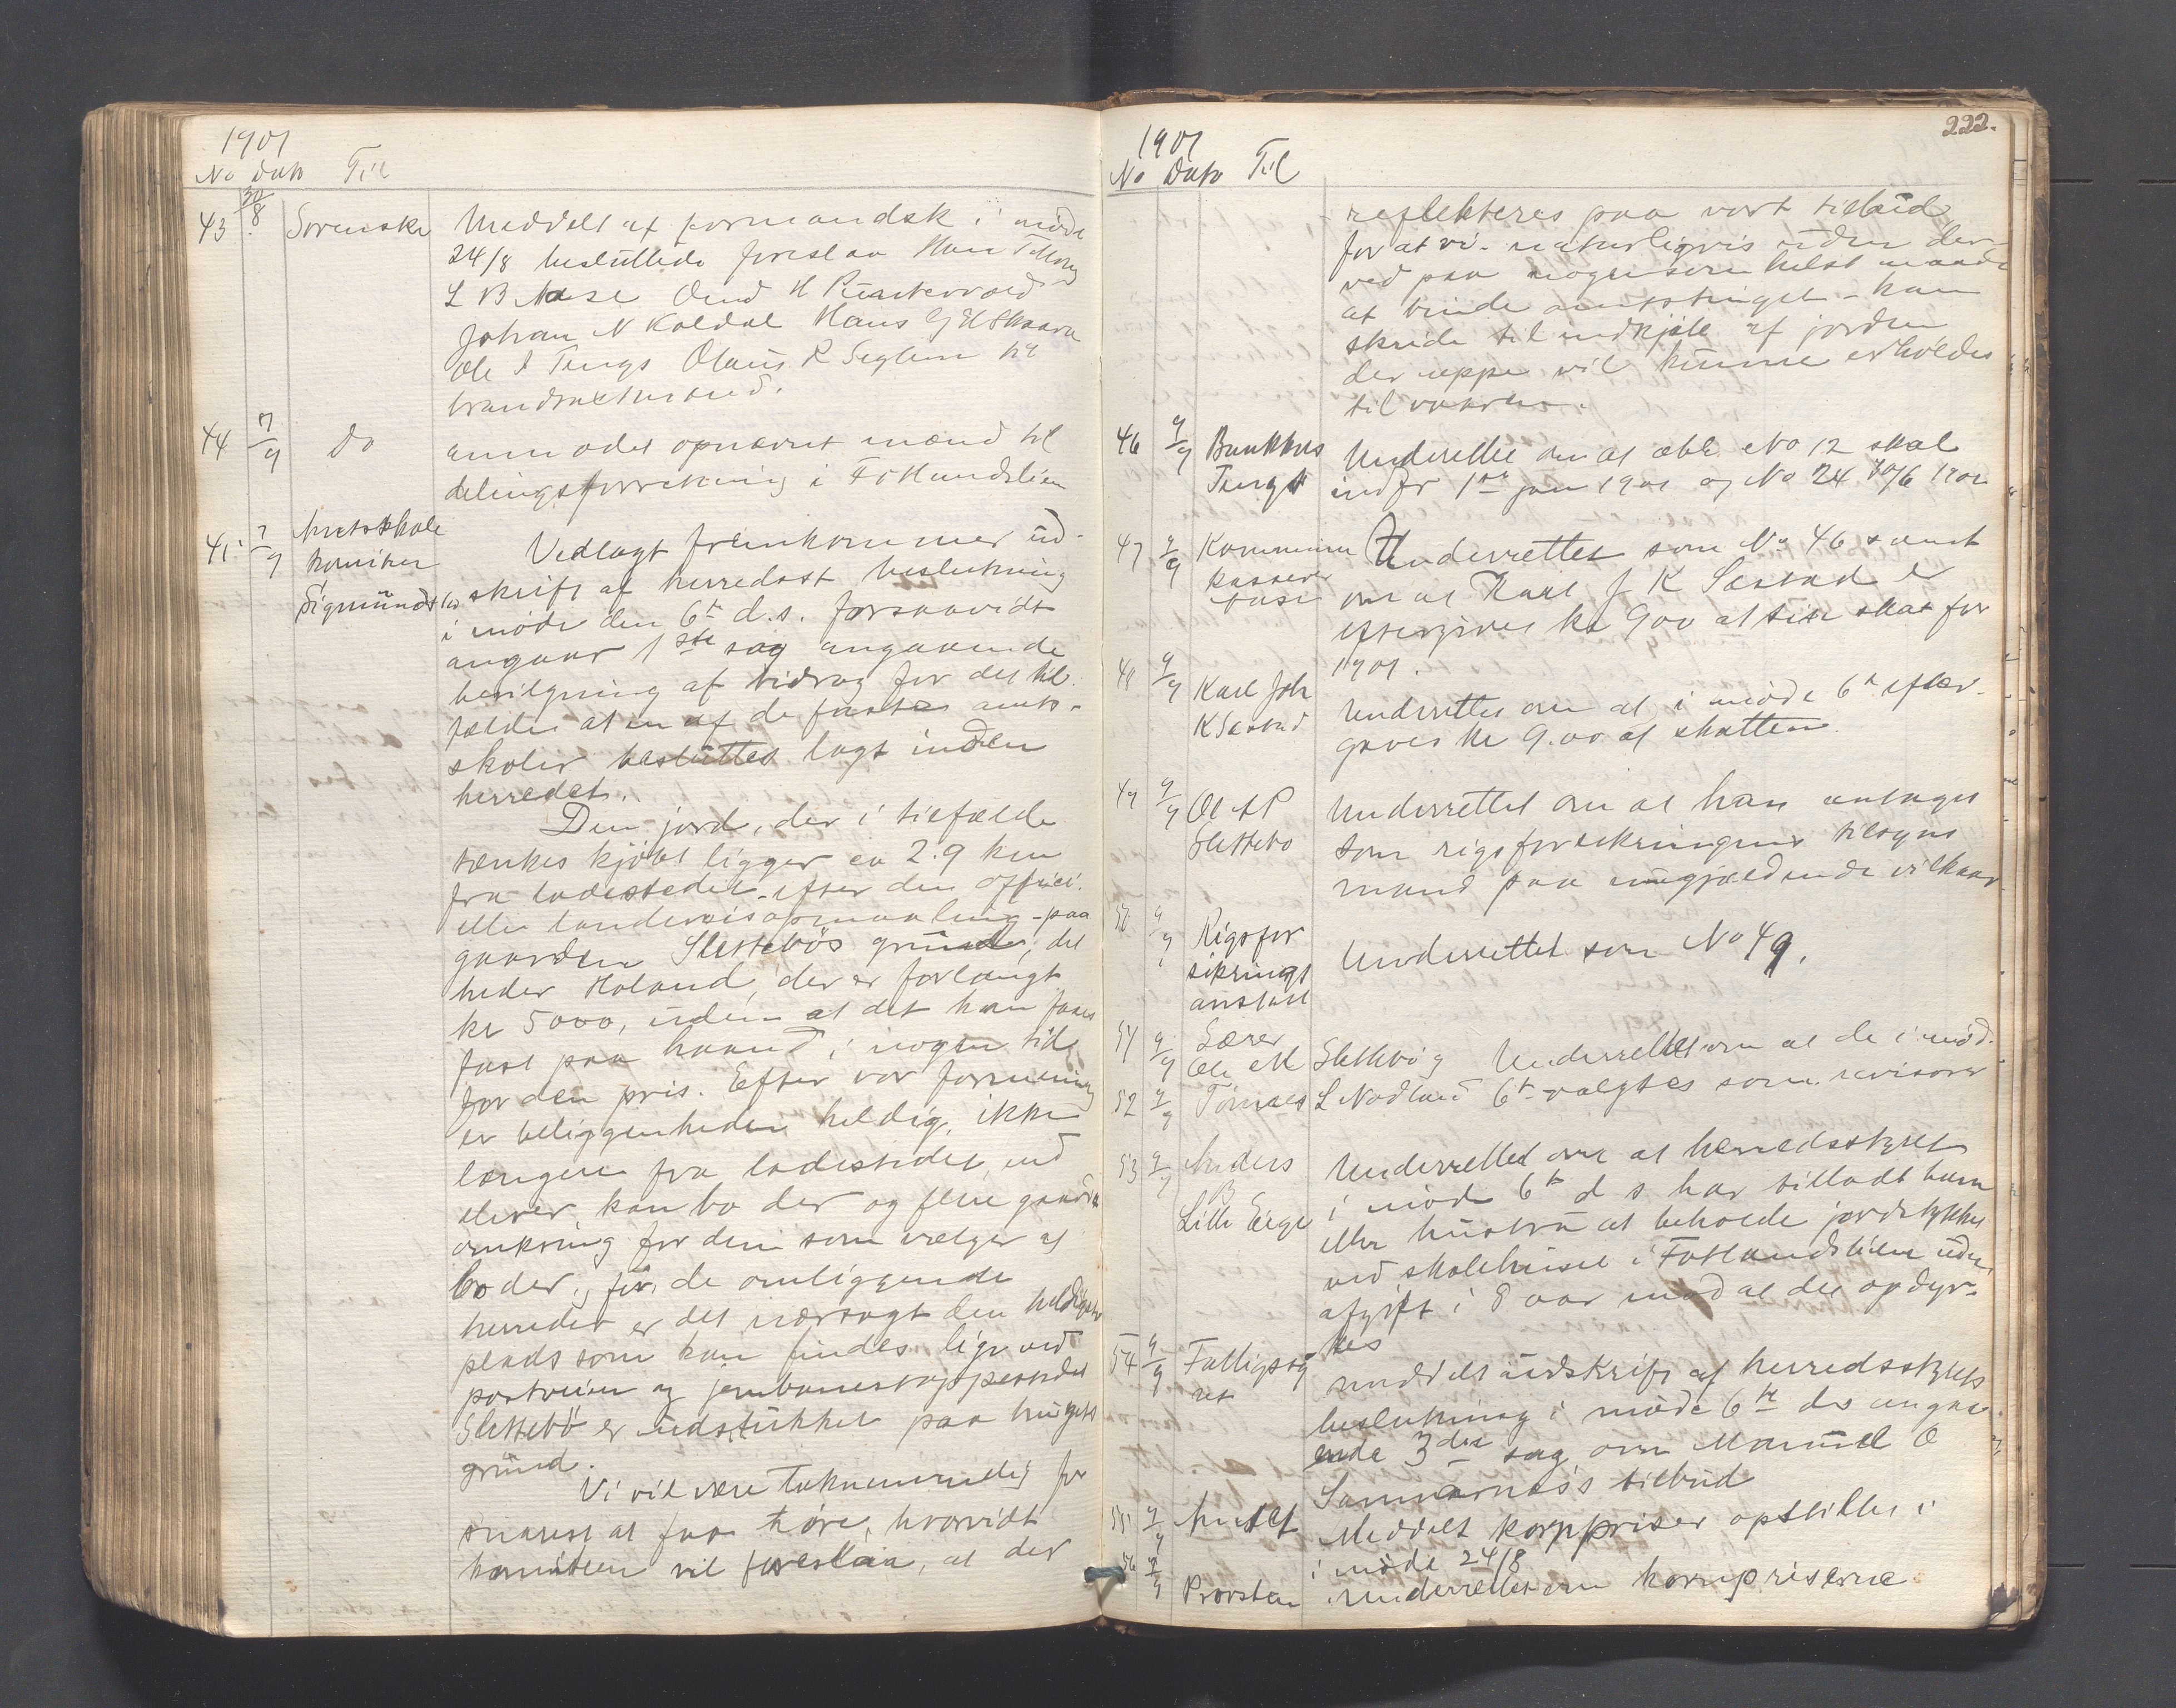 1901
No Dato Til
43 30/8 Sorenskr Meddelt at formandsk i møde
24/8 besluttede foreslaa Hans
L B Aase Omd H
Johan N Koldal Hans G H Skaara
Ole I Tengs Olaus R Seglem til
brandtaxtmænd.
44 7/9 Do anmodet opnævnt mænd til
delingsforretning i Fotlandslien
45 7/9 Amtsskole
komiteen
Sigmundstad
Vedlagt fremkommer ud-
skrift af herredsst beslutning
i møde den 6te d.s. forsaavidt
angaar 1ste sag angaaende
bevilgning af bidrag for det til-
fælde at en af de faste amts-
skoler besluttes lagt inden
herredet.
Den jord, der i tilfælde
tænkes kjøbt ligger ca 2.9 km
fra ladestedet - efter den offici-
elle landeveisopmaaling - paa
gaarden Slettebøs grund, det
heder Holand, der er forlangt
kr 5000, uden at det kan faaes
fast paa haand i nogen tid
for den pris. Efter vor formening
er beliggenheden heldig, ikke
længere fra ladestedet end
elever kan bo der og flere gaarde
omkring for dem som vælger at
bo der, for de omliggende
herreder er det næssagt den heldigste
plads som kan findes lige ved
postveien og jernbanestoppestedet
Slettebø er udstukket paa brugets
grund.
Vi vil være taknemmelig for
snarest at faa høre, hvorvidt
komiteen vil foreslaa, at der
222.
1901
No Dato Til
reflekteres paa vort tilbud
for at vi - naturligvis uden der-
ved paa nogensomhelst maade
at binde amtstinget - kan
skride til indkjøb af jorden
der neppe vil kunne erholdes
til vaaren.
46 9/9 Bankkas
Tengs
Underrettet om at obl. No 12 skal
indfr 1ste jan 1901 og No 24 30/6 1901
47 9/9 Kommune
kasserer
Aase
Underrettet som No 46 samt
om at Karl J K Sæstad er
eftergivet kr 9.00 af sin skat for
1901.
48 9/9 Karl Joh
K Sæstad
Underrettes om at i møde 6te efter-
gaves kr 9.00 af skatten.
49 9/9 Ole A P
Slettebø
Underrettet om at han antages
som rigsforsikringens tilsyns
mand paa omgjældende vilkaar
50 9/9 Rigsfor
sikrings
anstalt
Underrettet som No 49.
51 9/9 Lærer
Ole M Slettebø og Underrettet om at de i mød.
52 9/9 Tønnes L Nodland 6te valgtes som revisorer
53 9/9 Anders
B
Lille Eige
Underrettet om at herredsstyret
i møde 6te d s har tilladt ham
eller hustru at beholde jordstykket
ved skolehuset i Fotlandslien uden
afgift i 8 aar mod at det opdyr-
kes
54 9/9 Fattigsty
ret
meddelt udskrift af herredsstyrets
beslutning i møde 6te ds angaa-
ende 3die sag om Manuel O
tilbud
55 9/9 Amtet Meddelt kornpriser opstillet i
i møde 24/8
56 9/9 Provsten Underrettet om kornpriserne